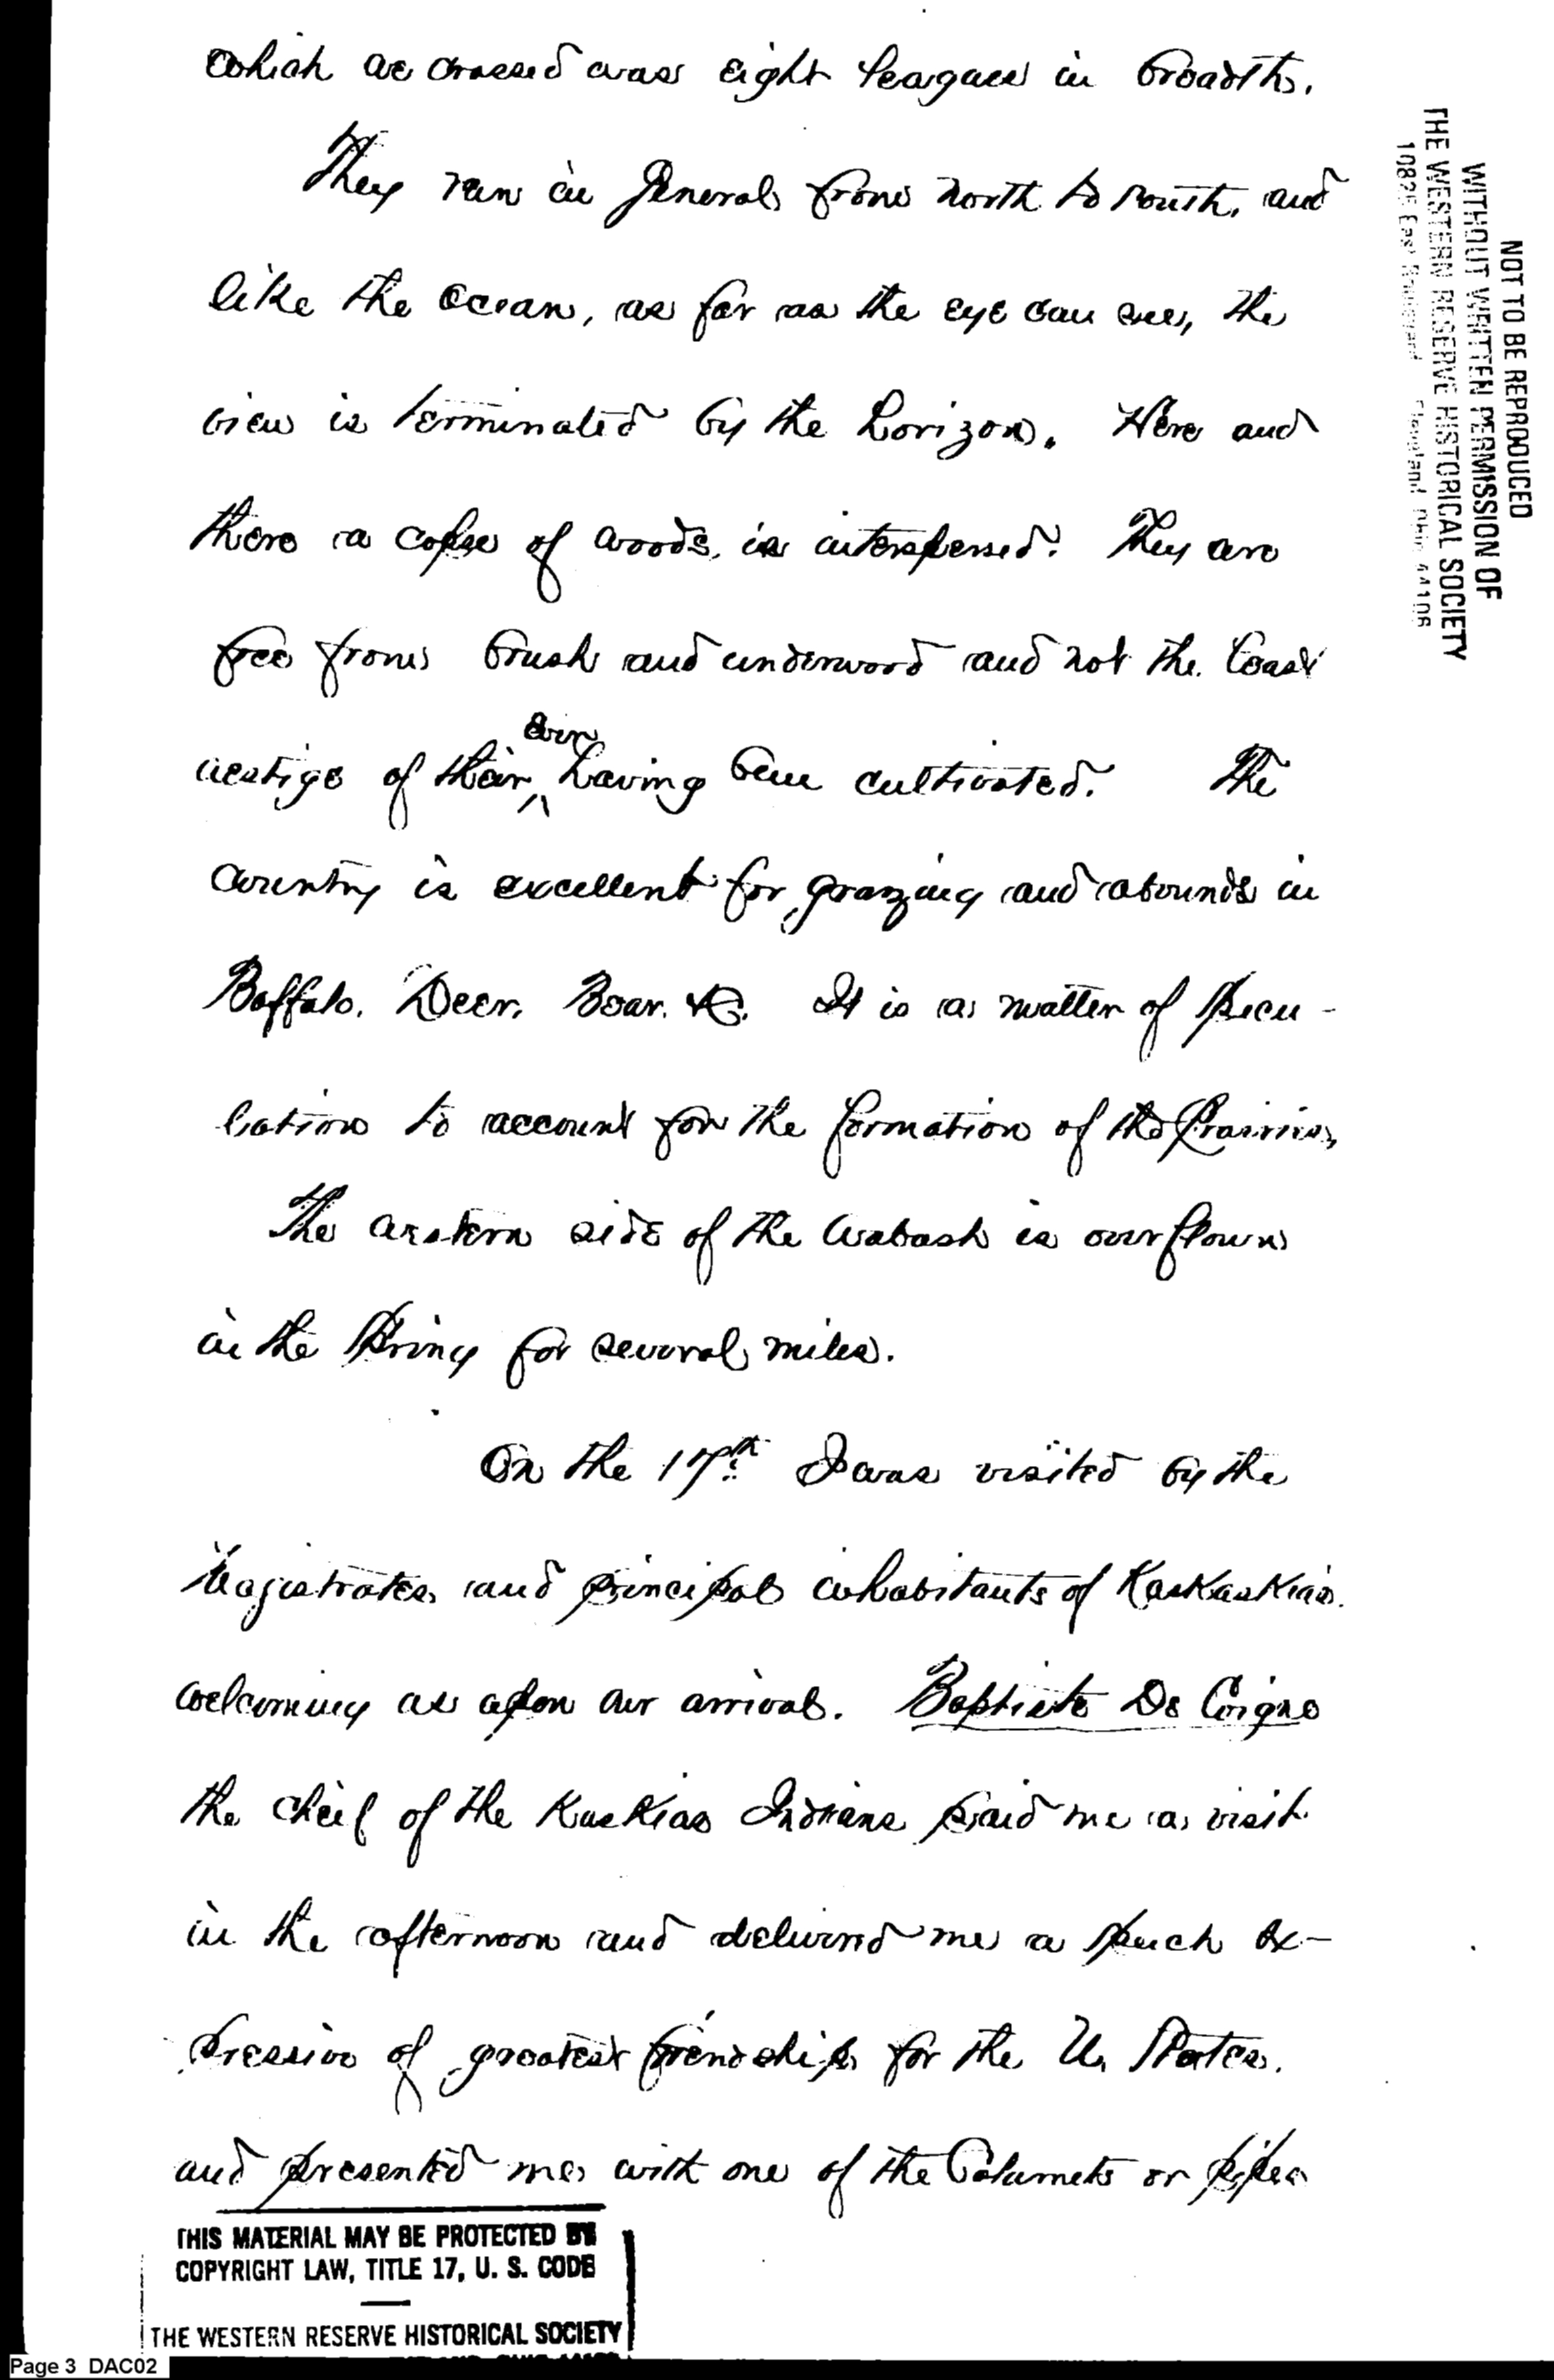 which we crossed was eight leagues in breadth.
They run in general from north to south, and
like the Ocean, as far as the eye can see, the
view is terminated by the horizon. Here and
there a copse of woods is interspersed. They are
free from brush and underwood and not the least
vestige of their ^ ever having been cultivated. The
country is excellent for grazing and abounds in
Buffalo, Deer, Bear, &c. It is a matter of specu-
lation to account for the formation of the Prairies,
The western side of the Wabash is overflown
in the Spring for several miles.
On the 17th I was visited by the
Magistrates and principal inhabitants of Kaskaskias
welcoming us upon our arrival. Baptiste De Coigne
the chief of the Kaskias Indians paid me a visit
in the afternoon and delivered me a speech ex-
pressive of greatest friendship for the U. States.
and presented me with one of the Calumets or pipes
NOT TO BE REPRODUCED
WITHOUT WRITTEN PERMISSION OF
THE WESTERN RESERVE HISTORICAL SOCIETY
10825 East Cleveland, Ohio 44106
THIS MATERIAL MAY BE PROTECTED BY
COPYRIGHT LAW, TITLE 17, U. S. CODE
THE WESTERN RESERVE HISTORICAL SOCIETY
Page 3 DAC02